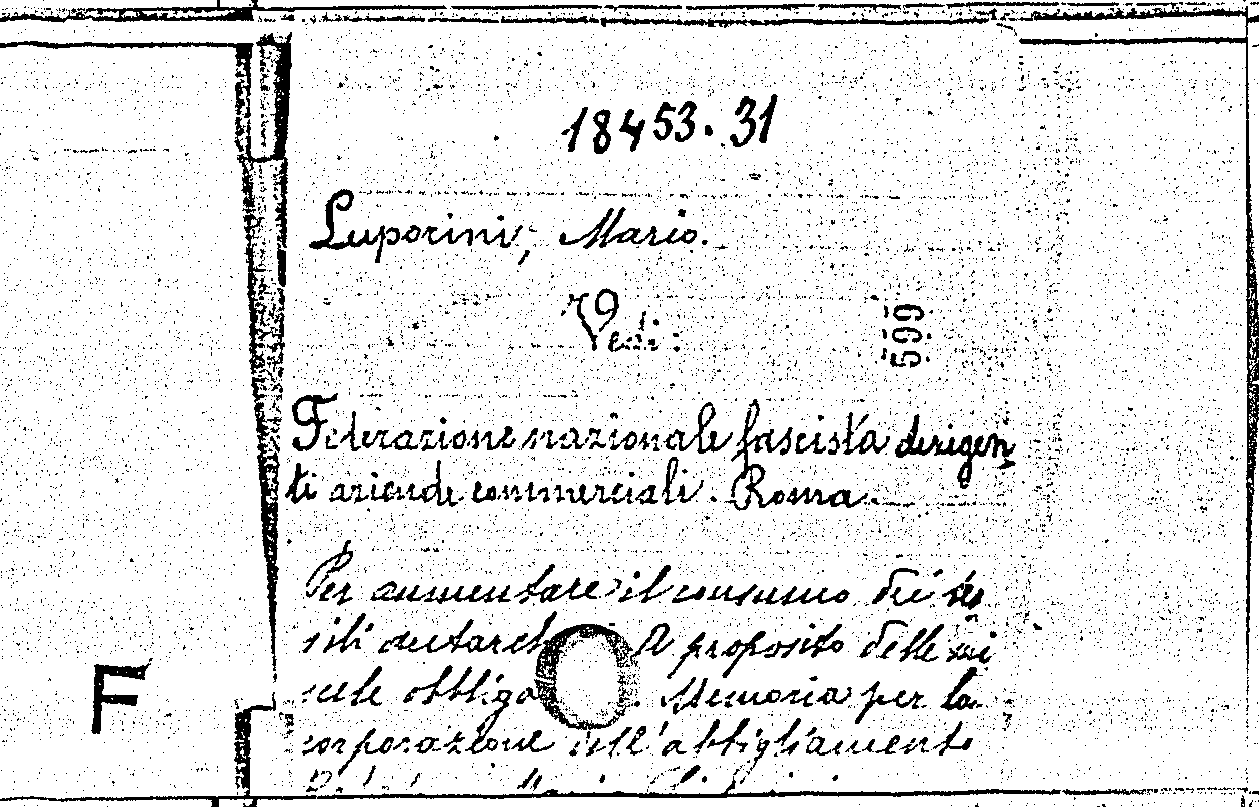 18453.31
Luporini, Mario.
Vedi:
599
Federazione nazionale fascista dirigen
ti aziende commerciali. Roma.
Per aumentare il consumo dei tes
sili autarch A proposito delle mi
scele obbliga . Memoria per la
corporazione dell'abbigliamento
F